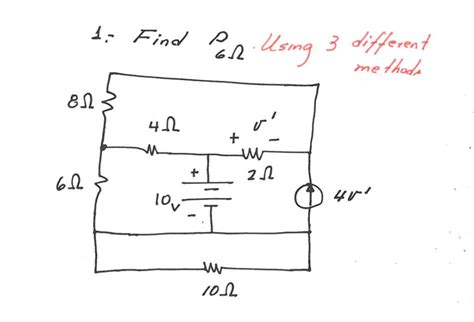 1:- Find P6Ω. Using 3 different
methods
8Ω
4Ω
+ v' -
6Ω
+
10v
-
2Ω
4v'
10Ω